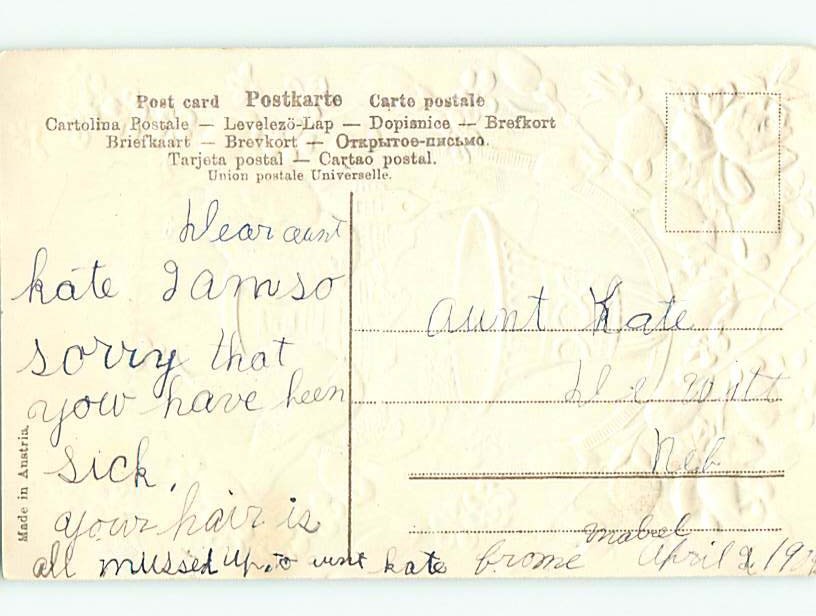 Post card Postkarte Carte postale
Cartolina Postale — Levelezö-Lap — Dopisnice — Brefkort
Briefkaart — Brevkort — Открытое-письмо.
Tarjeta postal — Cartao postal.
Union postale Universelle.
Dear aunt
kate I am so
sorry that
yow have been
sick.
your hair is
all mussed up. to
kate frome mabel
April 2
aunt Kate
De witt
Neb
Made in Austria.